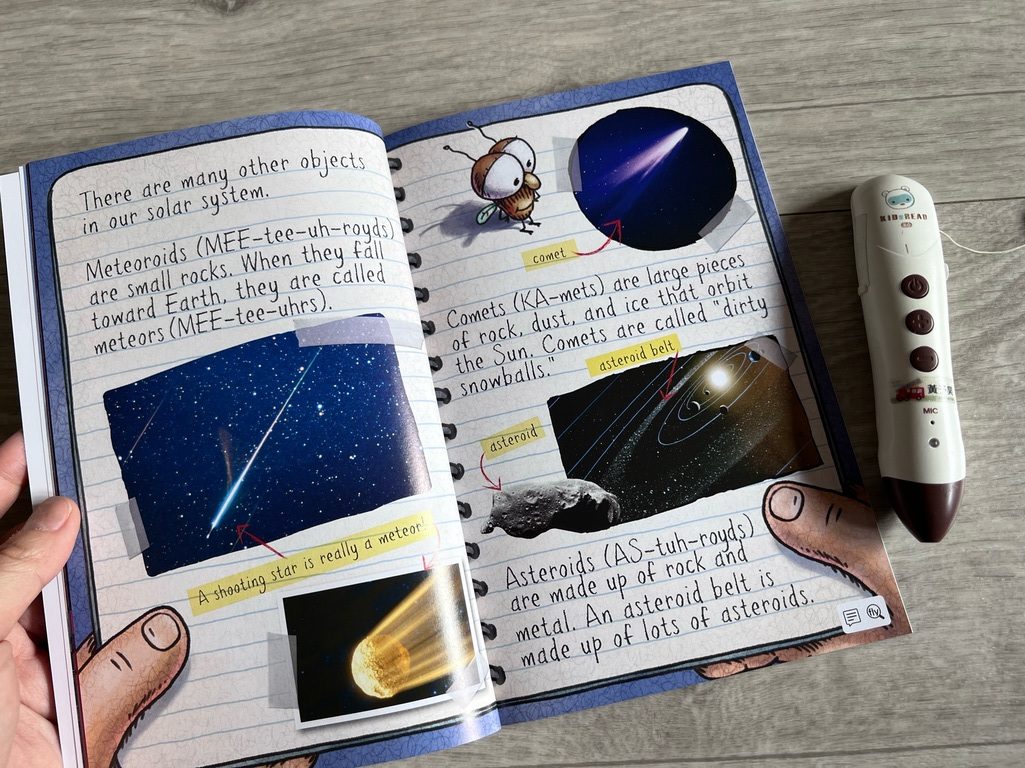 There are many other objects
in our solar system.
Meteoroids (MEE-tee-uh-royds)
are small rocks. When they fall
toward Earth, they are called
meteors (MEE-tee-uhrs).
A shooting star is really a meteor!
comet
Comets (KA-mets) are large pieces
of rock, dust, and ice that orbit
the Sun. Comets are called "dirty
snowballs."
asteroid belt
asteroid
Asteroids (AS-tuh-royds)
are made up of rock and
metal. An asteroid belt is
made up of lots of asteroids.
fly
KIDsREAD
MIC